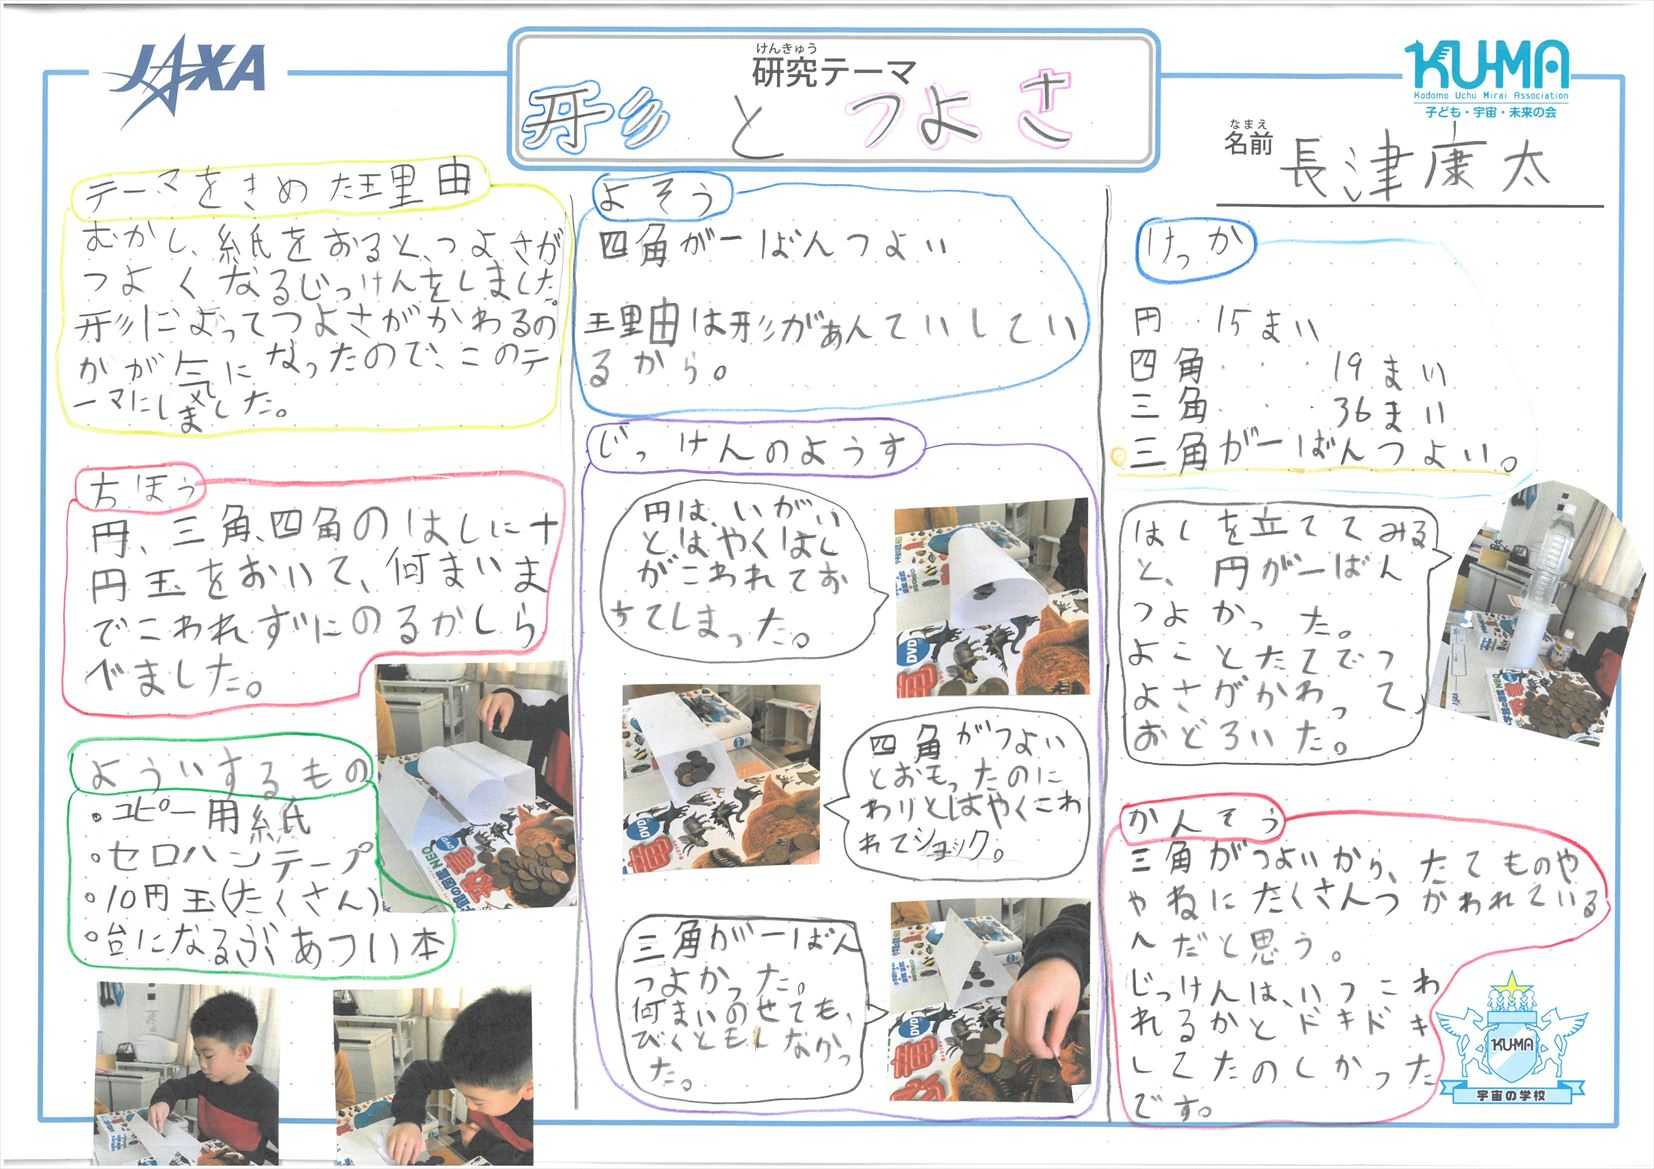 JAXA
けんきゅう
研究テーマ
形とつよさ
KU-MA
Kodomo Uchu Mirai Association
子ども・宇宙・未来の会
なまえ
名前
長津康太
テーマをきめた理由
むかし、紙をおると、つよさが
つよくなるじっけんをしました。
形によってつよさがかわるの
かが気になったので、このテ
ーマにしました。
方ほう
円、三角、四角のはしに十
円玉をおいて、何まいま
でこわれずにのるかしら
べました。
よういするもの
・コピー用紙
・セロハンテープ
・10円玉(たくさん)
・台になるぶあつい本
よそう
四角が一ばんつよい
理由は形があんていしてい
るから。
じっけんのようす
円は、いがい
とはやくはし
がこわれてお
ちてしまった。
四角がつよい
とおもったのに
わりとはやくこわ
れてショック。
三角が一ばん
つよかった。
何まいのせても、
びくともしなかっ
た。
けっか
円‥15まい
四角‥19まい
三角‥‥36まい
三角が一ばんつよい。
はしを立ててみる
と、円が一ばん
つよかった。
よことたてでつ
よさがかわって、
おどろいた。
かんそう
三角がつよいから、たてものや
やねにたくさんつかわれている
んだと思う。
じっけんは、いつこわ
れるかとドキドキ
してたのしかった
です。
KU-MA
宇宙の学校